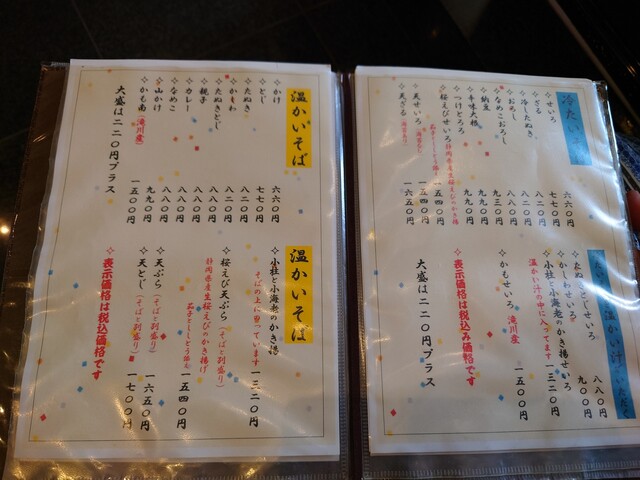 冷たいそば
せいろ 六六〇円
ざる 七七〇円
冷したぬき 八二〇円
おろし 八二〇円
なめこおろし 八八〇円
納豆 九三〇円
辛味大根 九九〇円
つけとろろ 九九〇円
桜えびせいろ 一五四〇円
静岡県産生桜えびのかき揚
茄子とししとう添え
天せいろ 一五四〇円
天ざる 一六五〇円
温かい汁
たぬきとじせいろ 八八〇円
かしわせいろ 九〇〇円
小柱と小海老のかき揚せいろ 一三二〇円
温かい汁の中に入ってます
かもせいろ 滝川産 一五〇〇円
表示価格は税込み価格です
大盛は二二〇円プラス
温かいそば
かけ 六六〇円
とじ 七七〇円
たぬき 八二〇円
かしわ 八二〇円
たぬきとじ 八八〇円
親子 八八〇円
カレー 八八〇円
なめこ 八八〇円
山かけ 九九〇円
かも南（滝川産） 一五〇〇円
大盛は二二〇円プラス
温かいそば
小柱と小海老のかき揚 一三二〇円
そばの上に乗っています
桜えび天ぷら（そばと別盛り） 一五四〇円
静岡県産生桜えびのかき揚げ
茄子とししとう添え
天ぷら（そばと別盛り） 一六五〇円
天とじ（そばと別盛り） 一七〇〇円
表示価格は税込価格です